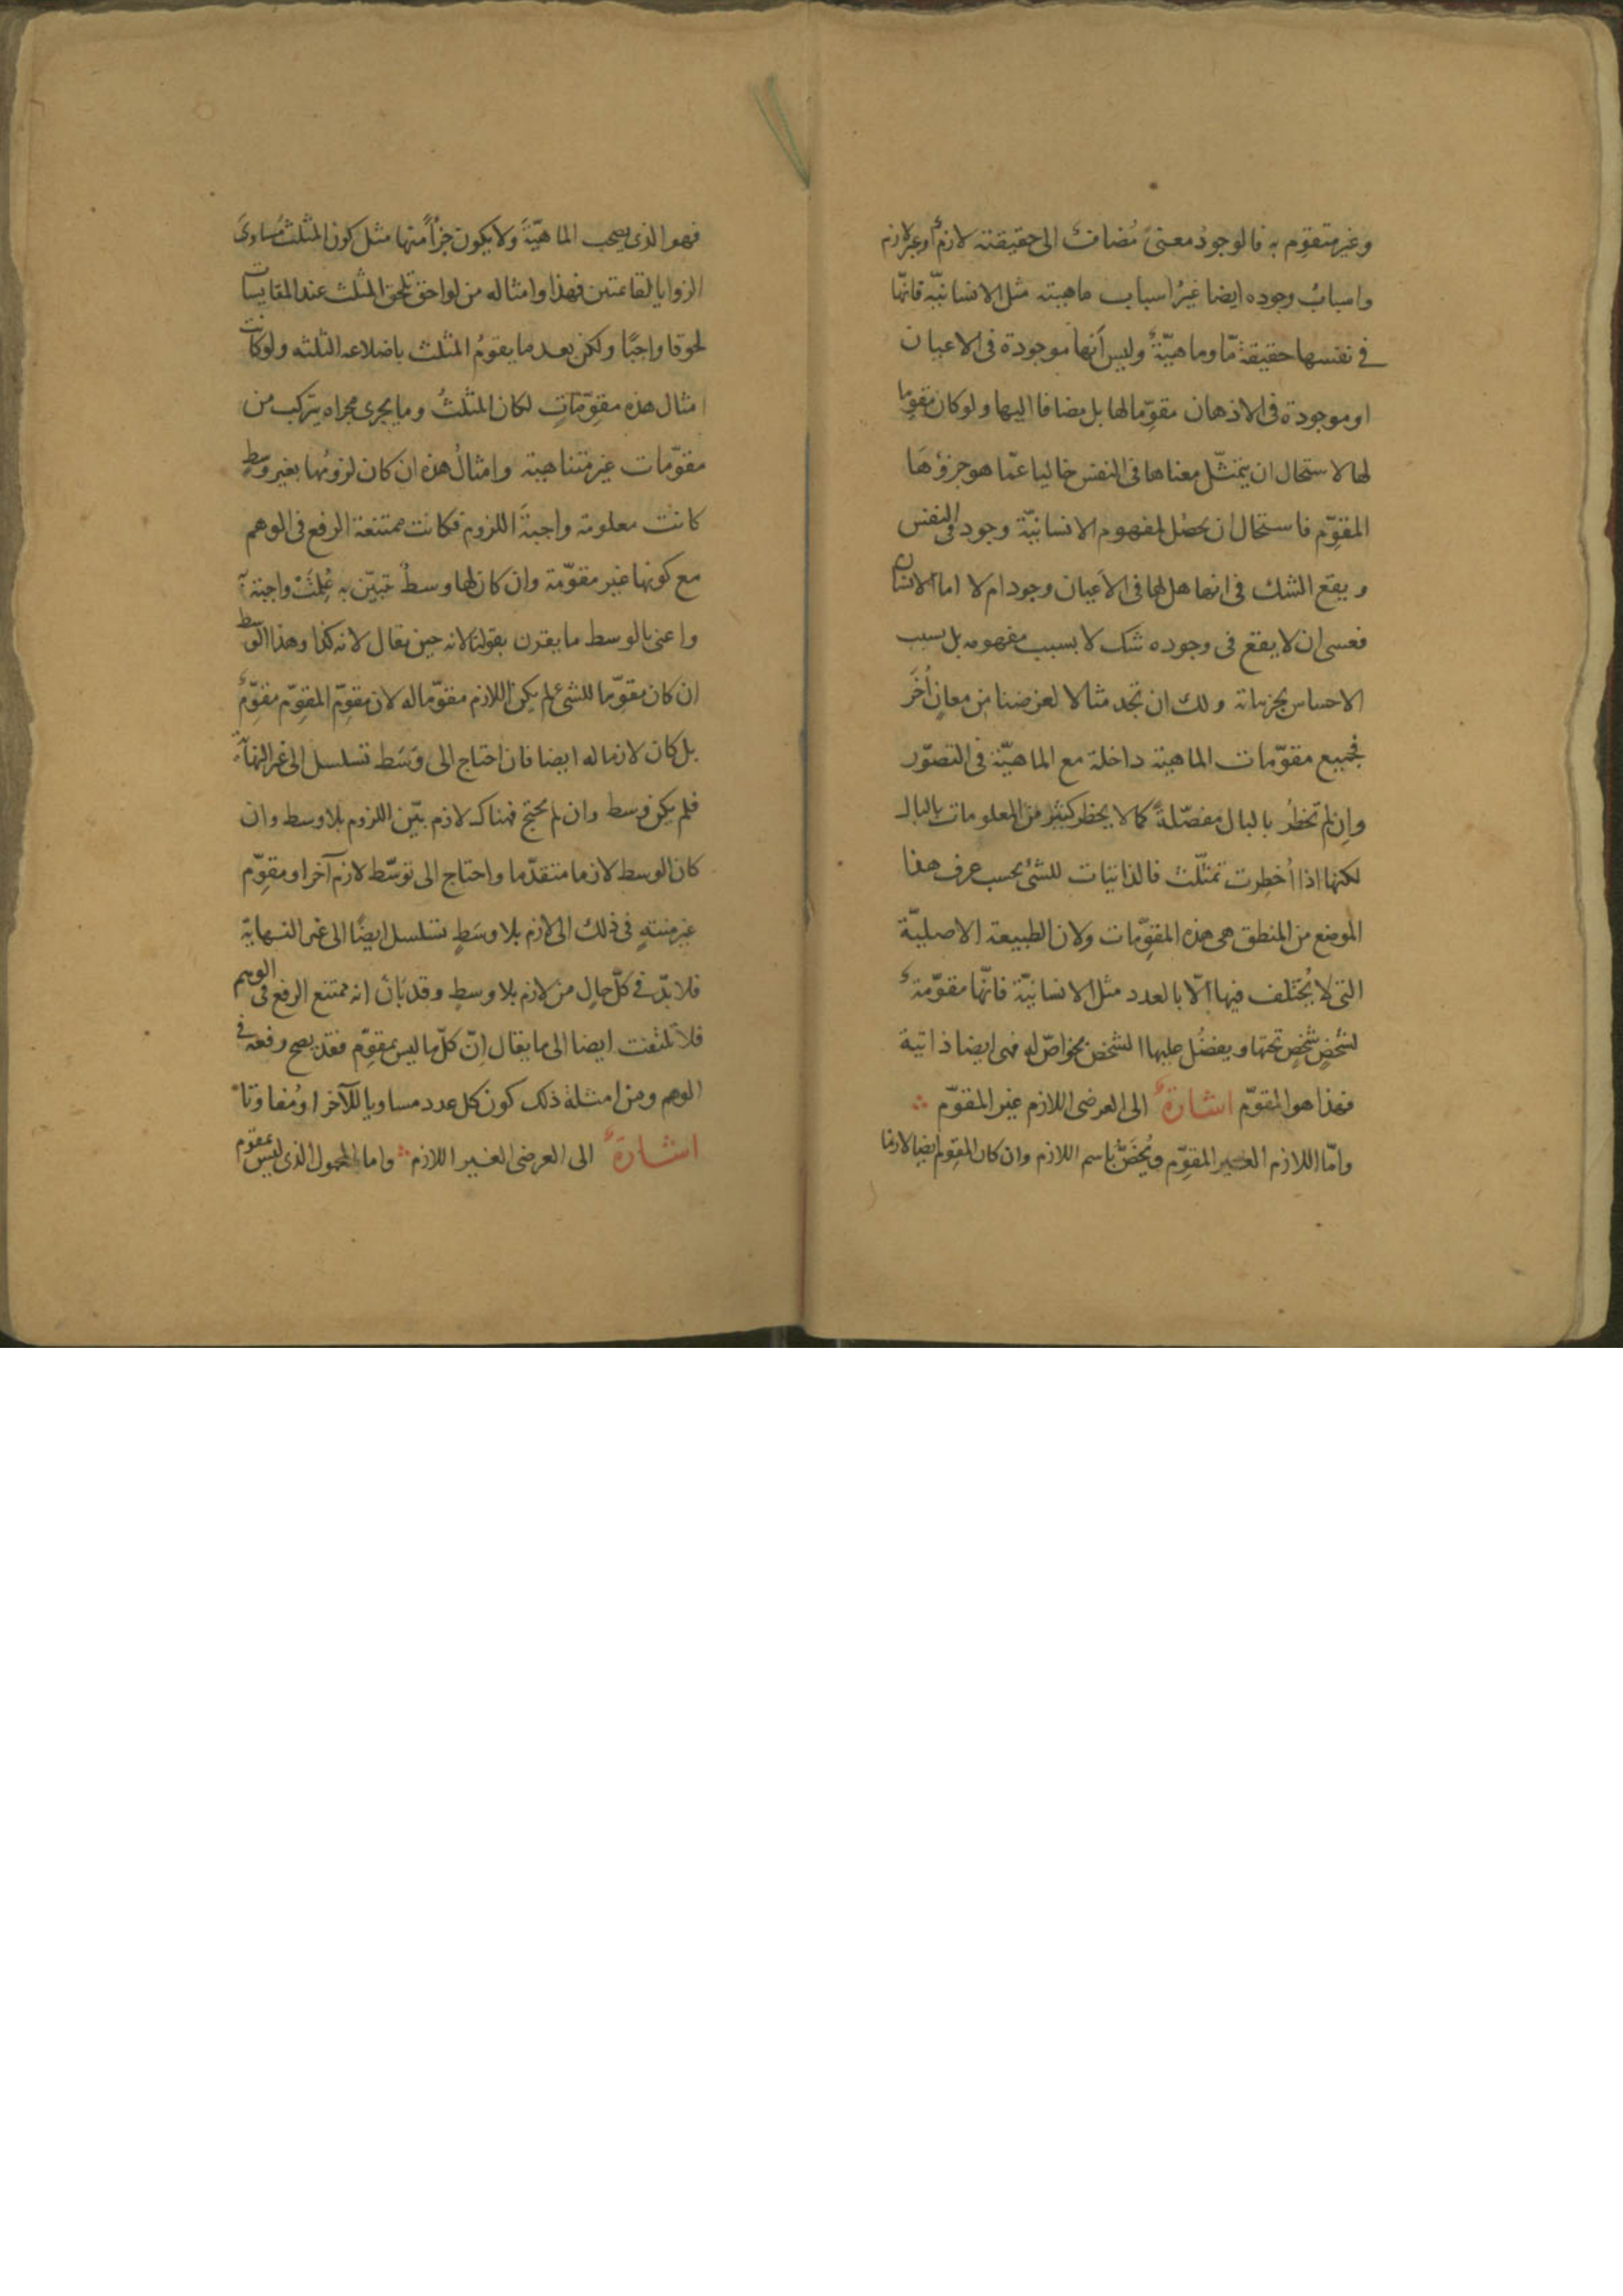 وغير متقوّم به فالوجودُ معنىً مُضافٌ الى حقيقته لازمٌ او غير لازم
واسبابُ وجوده ايضا غيرُ اسباب ماهيته مثل الانسانيّة فانّها
في نفسها حقيقةٌ مّا وماهيّةٌ وليس أنها موجودة في الاعيان
او موجودة في الاذهان مقوّما لها بل مضافا اليها ولو كان مقوّما
لها لاستحال ان يتمثّل معناها في النفس خاليا عمّا هو جزؤها
المقوِّم فاستحال ان يحصُل لمفهوم الانسانيّة وجود في النفس
ويقع الشك في انها هل لها في الاعيان وجود ام لا اما الانسان
فعسى ان لا يقع في وجوده شك لا بسبب مفهومه بل بسبب
الاحساس بجزئياته ولك ان تجد مثالا لغرضنا من معانٍ أُخَر
فجميع مقوّمات الماهية داخلة مع الماهيّة في التصوّر
وإن لم تخطُر بالبال مفصّلةً كما لا يخطر كثير من المعلومات بالبال
لكنها اذا أُخطِرت تمثّلت فالذاتيات للشئ بحسب عرف هذا
الموضع من المنطق هي هذه المقوّمات ولان الطبيعة الاصليّة
التي لا يُختلف فيها الّا بالعدد مثل الانسانيّة فانّها مقوّمةٌ
لشخصٍ شخصٍ تحتها ويفضُل عليها الشخص بخواصّ له فهي ايضا ذاتية
فهذا هو المقوّم اشارةٌ الى العرضي اللازم غير المقوّم
وامّا اللازم الغير المقوّم ويُخَصّ باسم اللازم وان كان المقوّم ايضا لازما
فهو الذي يصحب الماهيّةَ ولا يكون جزأً منها مثل كون المثلث مُساوىَ
الزوايا لقائمتين فهذا وامثاله من لواحق تلحق المثلث عند المقايسات
لحوقا واجبًا ولكن بعد ما يقومُ المثلث باضلاعه الثلثة ولو كانت
امثال هذه مقوّماتٍ لكان المثلثُ وما يجرى مجراه يتركّب من
مقوّمات غير متناهية وامثالُ هذه ان كان لزومُها بغير وسطٍ
كانت معلومة واجبةَ اللزوم فكانت ممتنعة الرفع في الوهم
مع كونها غير مقوّمة وان كان لها وسطٌ تتبيّن به عُلِمَتْ واجبة
واعني بالوسط ما يقرن بقولنا لانه حين يقال لانه كذا وهذا الوسط
ان كان مقوّما للشئ لم يكن اللازم مقوّما له لان مقوّم المقوّم مقوّمٌ
بل كان لازما له ايضا فان احتاج الى وسَط تسلسل الى غير النهاية
فلم يكن وسط وان لم يحتج فهناك لازم بيّن اللزوم بلا وسط وان
كان الوسط لازما متقدّما واحتاج الى توسّط لازم آخر او مقوّم
غير منتهٍ في ذلك الى لازم بلا وسَطٍ تسلسل ايضًا الى غير النهاية
فلا بدّ في كلّ حالٍ من لازم بلا وسطٍ وقد بَانَ انه ممتنع الرفع في الوهم
فلا تلتفت ايضا الى ما يقال إنّ كلّ ما ليس بمقوّم فقد يصح رفعه في
الوهم ومن امثلة ذلك كون كل عدد مساويا للآخر او مُفاوتا
اشارةٌ الى العرضي الغير اللازم واما المحمول الذي ليس بمقوم